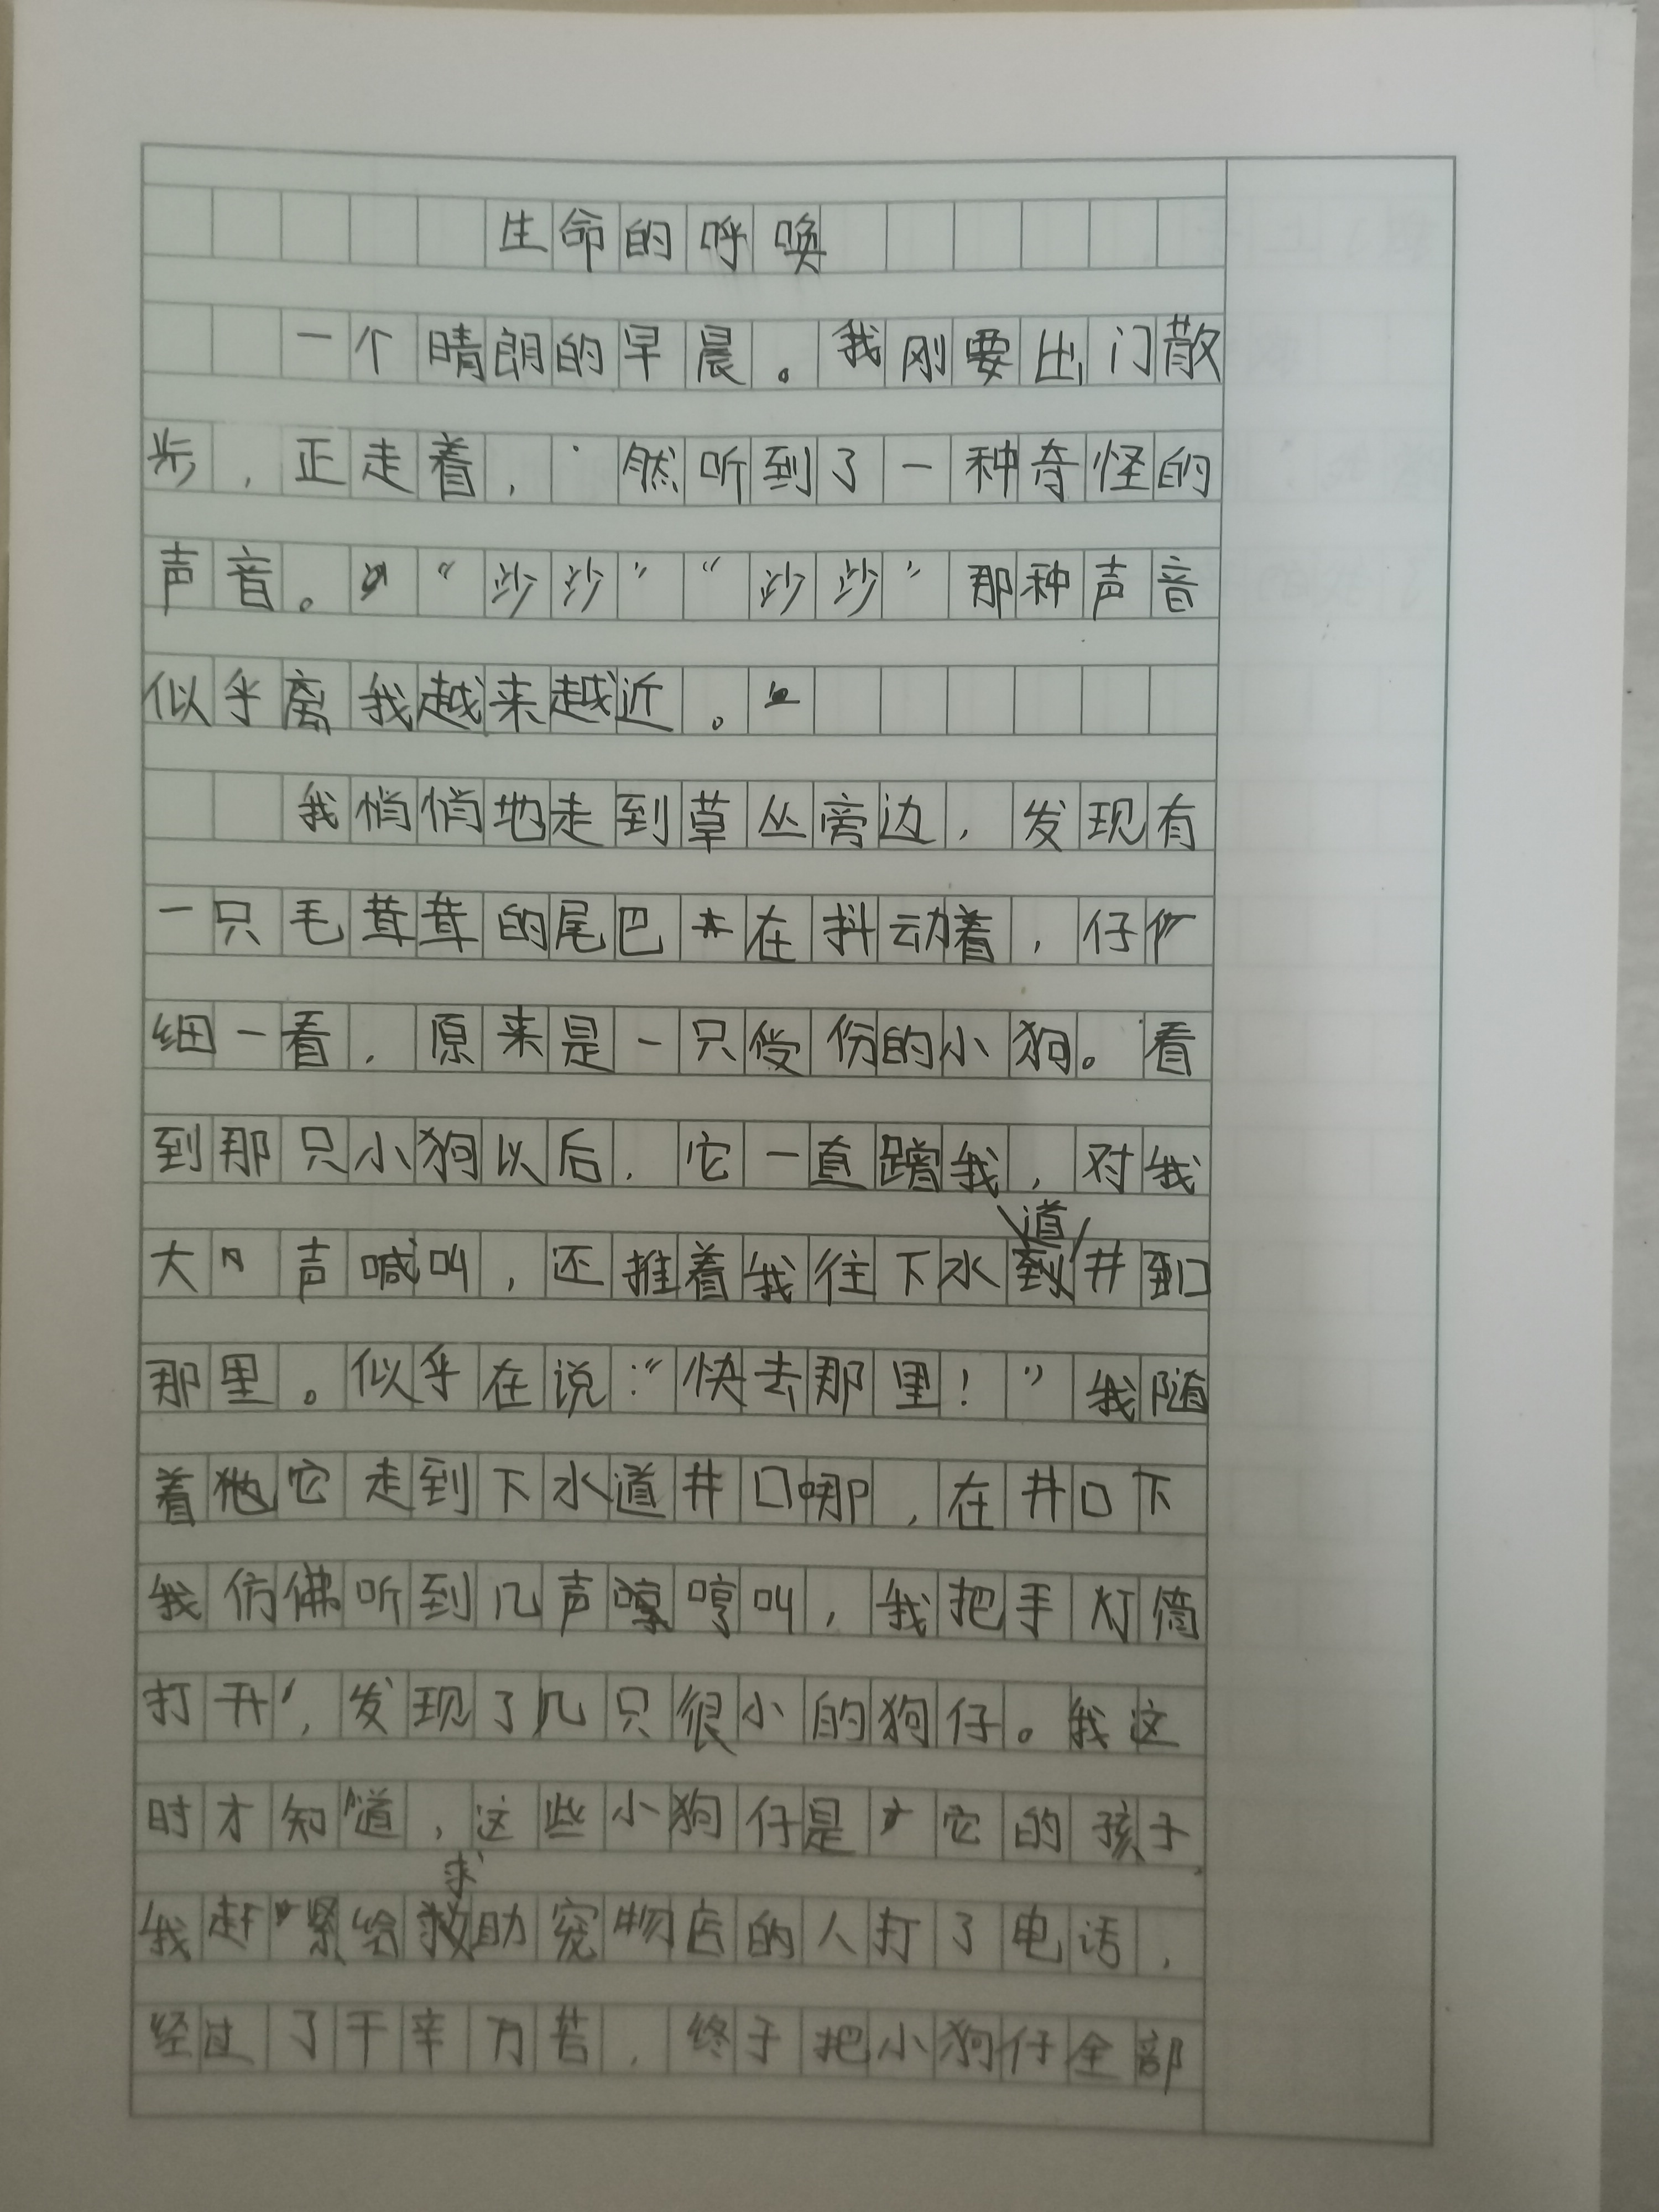 生命的呼唤
一个晴朗的早晨。我刚要出门散
步，正走着，然听到了一种奇怪的
声音。“沙沙”“沙沙”那种声音
似乎离我越来越近。
我悄悄地走到草丛旁边，发现有
一只毛茸茸的尾巴在抖动着，仔
细一看，原来是一只受伤的小狗。看
到那只小狗以后，它一直蹭我，对我
大声喊叫，还推着我往下水道井口
那里。似乎在说：“快去那里！”我随
着它走到下水道井口那，在井口下
我仿佛听到几声哼叫，我把手灯筒
打开，发现了几只很小的狗仔。我这
时才知道，这些小狗仔是它的孩子。
我赶紧给求助宠物店的人打了电话，
经过了千辛万苦，终于把小狗仔全部